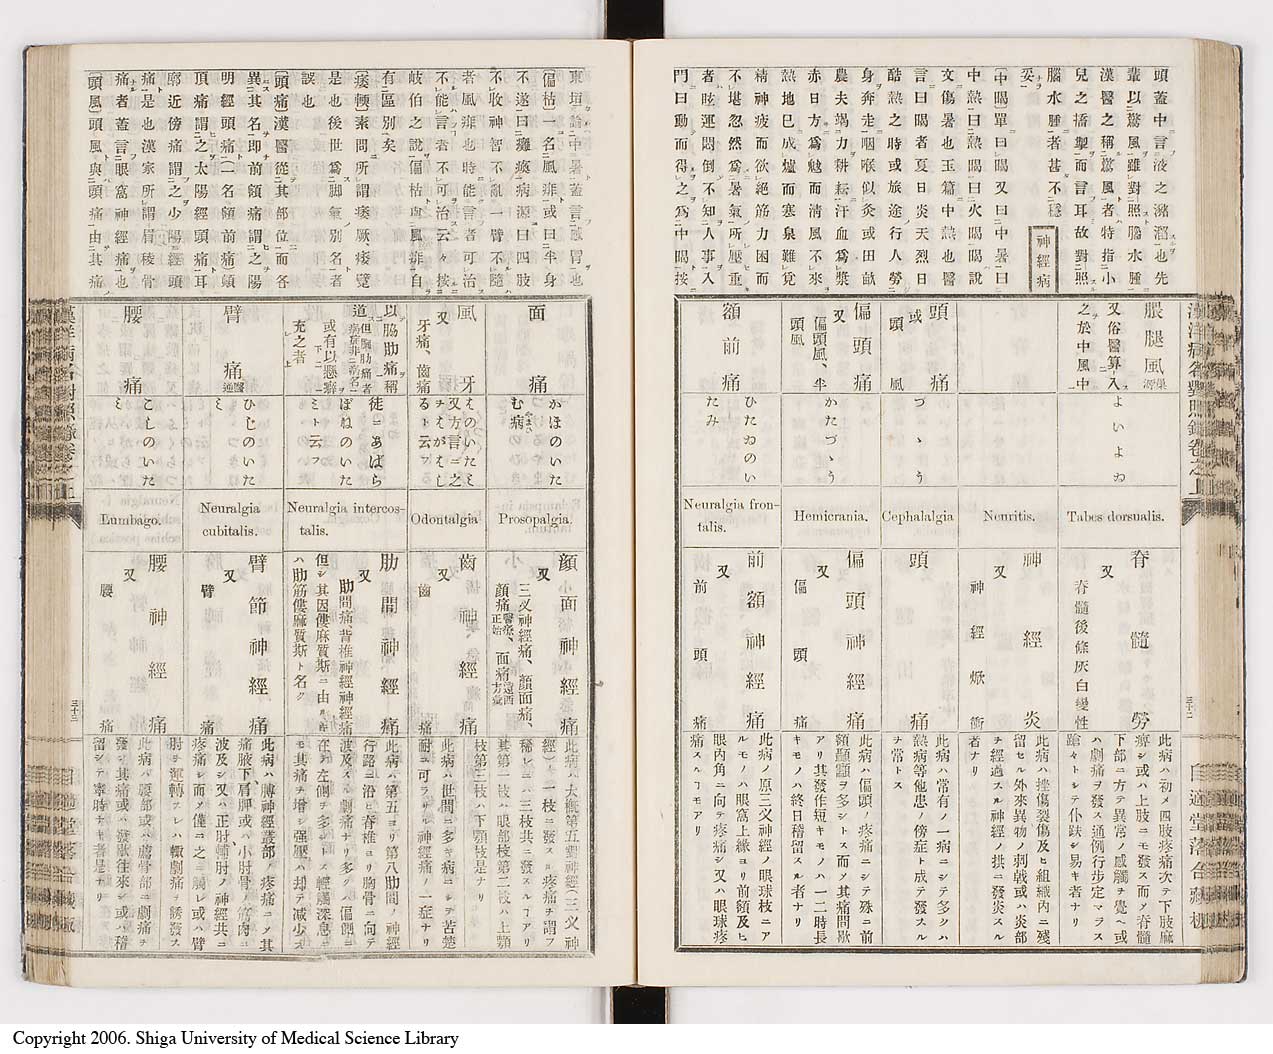 頭蓋中言液之瀦溜也先
輩以驚風雖對照腦水腫
漢醫之稱驚風者特指小
兒之搐掣而言耳故對照
腦水腫者甚不穩
妥
神經病
中暍單曰暍又曰中暑曰
中熱曰熱暍曰火暍暍說
文傷暑也玉篇中熱也醫
言曰暍者夏日炎天烈日
酷熱之時或旅途行人勞
身奔走咽喉似灸或田畝
農夫竭力耕耘汗血爲漿
赤日方爲魃而淸風不來
熱地已成爐而寒泉難覓
精神疲而欲絕筋力困而
不堪忽然爲暑氣所壓重
者眩運悶倒不知人事入
門曰動而得之爲中暍按
脤腿風
又俗醫算入
之於中風中
よいよゐ
Tabes dorsualis.
脊髓勞
又
脊髓後條灰白變性
此病ハ初メ四肢疼痛次テ下肢麻
痺シ或ハ上肢ニモ發ス而メ脊髓
下部ニ方テ異常ノ感觸ヲ覺ヘ或
ハ劇痛ヲ發ス通例行步定マラス
蹌々トシテ仆趺シ易キ者ナリ
Neuritis.
神經炎
又
神經焮衝
此病ハ挫傷裂傷及ヒ組織內ニ殘
留セル外來異物ノ刺戟或ハ炎部
ヲ經過スル神經ノ拱ニ發炎スル
者ナリ
頭痛
或
頭風
づゝう
Cephalalgia
頭痛
此病ハ常有ノ一病ニシテ多クハ
熱病等他患ノ傍症ト成テ發スル
ヲ常トス
偏頭痛
又
偏頭風、半
頭風
かたづゝう
Hemicrania.
偏頭神經痛
又
偏頭痛
此病ハ偏頭ノ疼痛ニシテ殊ニ前
額顳顬ヲ多シトス而メ其痛間歇
アリ其發作短キモノハ一二時長
キモノハ終日稽留スル者ナリ
額前痛
ひたゐのい
たみ
Neuralgia fron-
talis.
前額神經痛
又
前頭痛
此病ノ原三叉神經ノ眼球枝ニア
ルモノハ眼窩上緣ヨリ前額及ヒ
眼內角ニ向テ疼痛シ又ハ眼球疼
痛スルヿモアリ
東垣論中暑蓋言感冒也
偏枯一名風痱或曰半身
不遂曰癱瘓病源曰四肢
不收神智不亂一臂不隨
者風痱也時能言者可治
不能言者不可治云々按
岐伯之說偏枯與風痱自
有區別矣
痿軟素問所謂痿厥、痿躄
是也後世爲脚氣ノ別名者
誤也
頭痛漢醫從其部位而各
異其名即前額痛謂之陽
明經頭痛一名額前痛顱
頂痛謂之太陽經頭痛耳
廓近傍痛謂之少陽經頭
痛是也漢家所謂眉稜骨
痛者蓋言眼窩神經痛也
頭風頭風與頭痛由其痛
面痛
かほのいた
む病
Prosopalgia.
顏面神經痛
又
三叉神經痛、顏面痛、
此病ハ大概第五對神經(三叉神
經)ノ一枝ニ發スル疼痛ヲ謂フ
稀レニハ三枝共ニ發スルヿアリ
其第一枝ハ眼部枝第二枝ハ上顎
枝第三枝ハ下顎枝是ナリ
風牙
又
牙痛、齒痛
はのいたミ
又方言ニ之
ヲはがはし
るト云フ
Odontalgia
齒神經痛
又
齒痛
此病ハ世間ニ多キ病ニシテ苦楚
耐ユ可ラサル神經痛ノ一症ナリ
以脇肋痛稱
道
或有以懸癖
充之者
徒ニあばら
ぼねのいた
ミト云フ
Neuralgia intercos-
talis.
肋間神經痛
又
肋間痛背椎神經神經痛
但シ其因僂麻質斯ニ由ル者
ハ肋筋僂麻質斯ト名ク
此病ハ第五ヨリ第八肋間ノ神經
行路ニ沿ヒ脊椎ヨリ胸骨ニ向テ
波及スル劇痛ナリ多クハ偏側ニ
在テ左側ヲ多シトス輕觸深息ニ
モ其痛ヲ增シ强壓ハ却テ減少ス
臂痛
ひじのいた
ミ
Neuralgia
cubitalis.
臂節神經痛
又
臂痛
此病ハ膊神經叢部ノ疼痛ニメ其
痛腋下肩胛或ハ小肘骨ノ筋肉ニ
波及シ又ハ正肘轉肘ノ神經共ニ
疼痛シ而メ僅ニ之ニ觸レ或ハ臂
肘ヲ運轉スレハ輙劇痛ヲ誘發ス
腰痛
こしのいた
ミ
Lumbago.
腰神經痛
又
腰痛
此病ハ腰部或ハ薦骨部ニ劇痛ヲ
發シ其痛或ハ潑歇往來シ或ハ稽
留シテ寧時ナキ者是ナリ
Copyright 2006. Shiga University of Medical Science Library